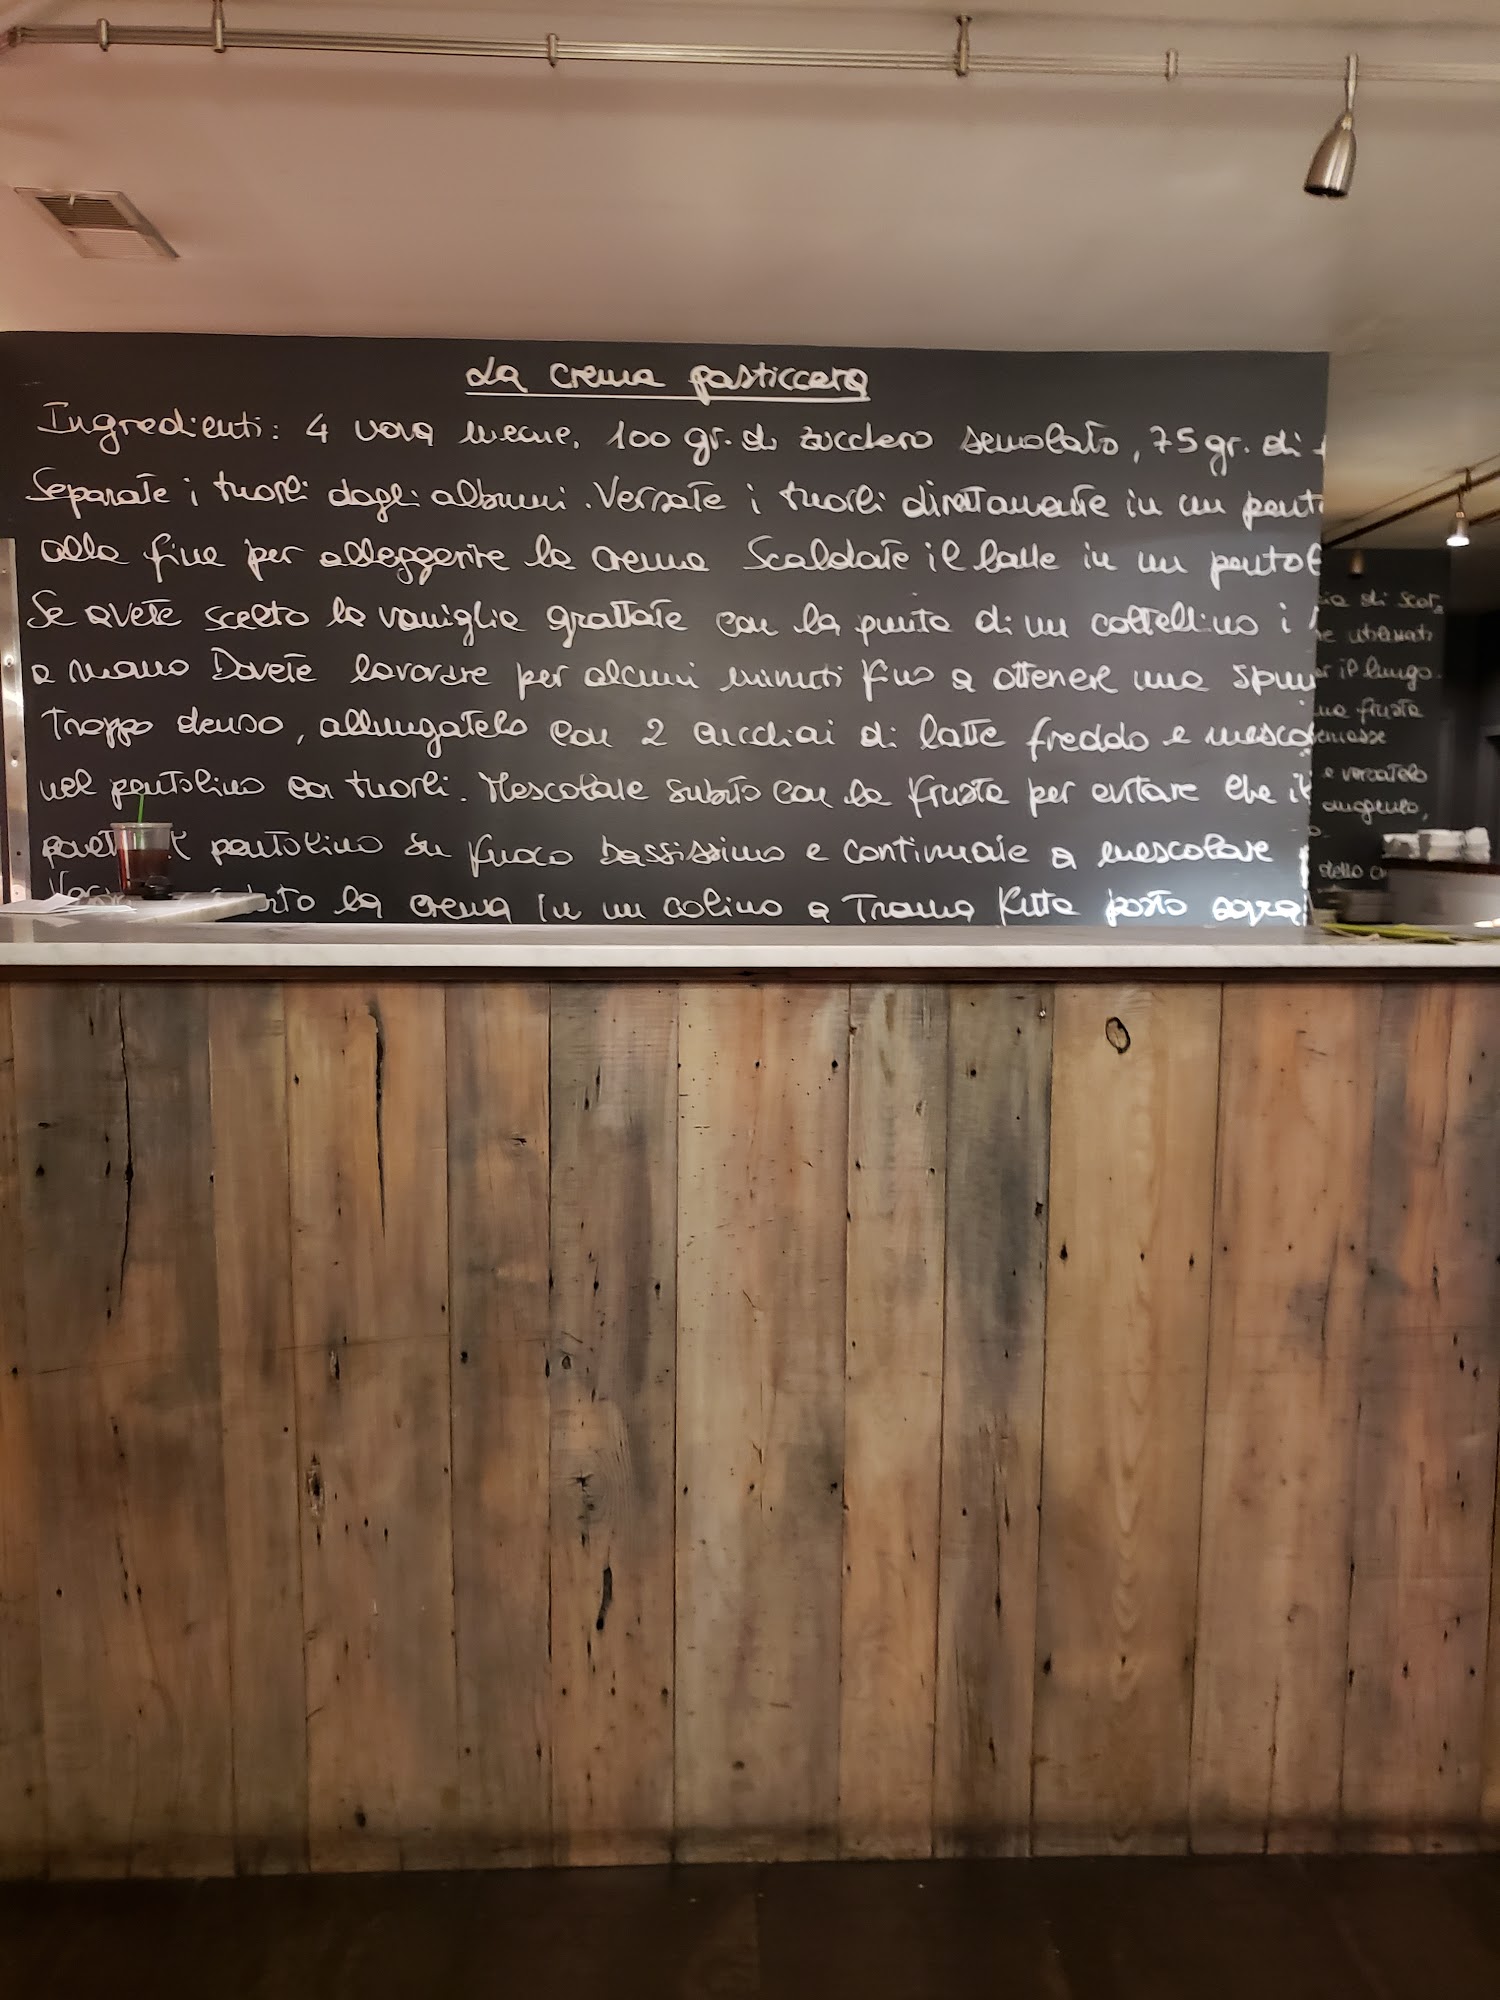 La crema pasticcera
Ingredienti: 4 uova medie, 100 gr. di zucchero semolato, 75 gr. di
Separate i tuorli dagli albumi. Versate i tuorli direttamente in un pent
alla fine per alleggerire la crema Scaldate il latte in un pentol
Se avete scelto la vaniglia grattate con la punta di un coltellino i
a mano Dovete lavorare per alcuni minuti fino a ottenere una spum
Troppo denso, allungatelo con 2 cucchiai di latte freddo e mesco
nel pentolino coi tuorli. Mescolate subito con la frusta per evitare che il
pentolino su fuoco bassissimo e continuate a mescolare
la crema in un colino a Trama fitta posto sopra
di scor
utilizzati
il lungo.
frusta
e versatelo
omogeneo,
dello